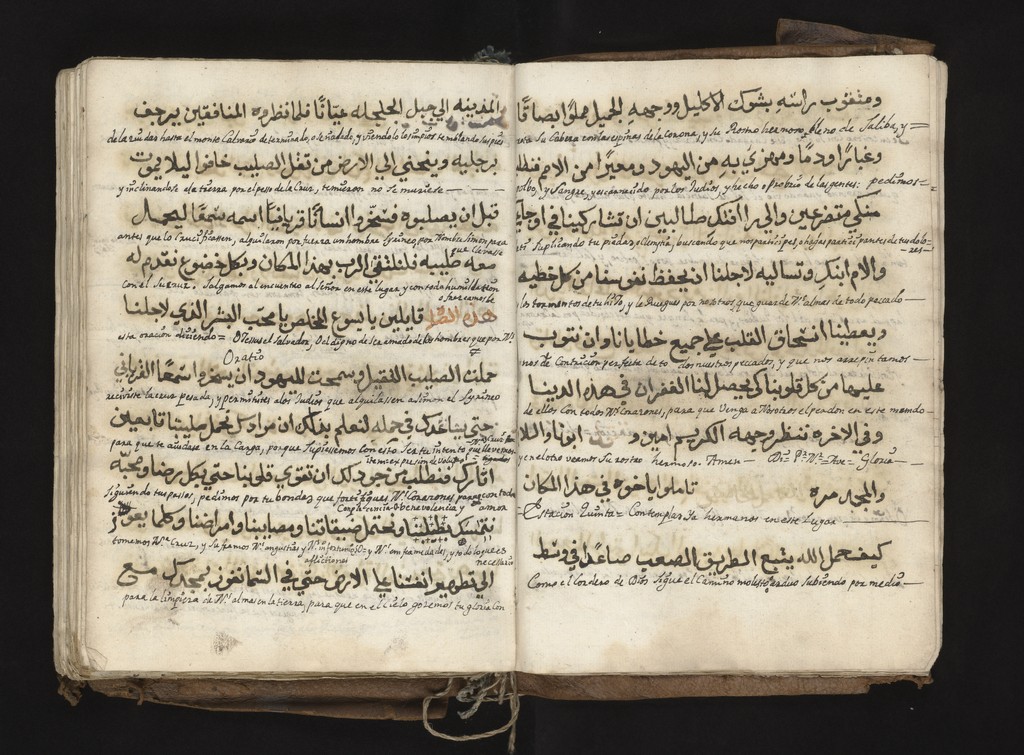 ومثقوب راسه بشوك الاكليل ووجهه الجميل مملوًا بصاقًا
Su Cabeza con las espinas de la corona, y su Rostro hermoso lleno de Saliba, y =
وغبارًا ودمًا ومهزيّ به من اليهود ومعيرًا من الامم فنطلب
polbo, y Sangre, y escarnecido por los Judios, y hecho oprobrio de las gentes: pedimos =
منك متضرعين والي رافتك طالبين ان تشاركنا في اوجاع
Suplicando tu piedad y clemencia, buscando que nos participes, o hagas participantes de tus dolores
والام ابنك وتساليه لاجلنا ان يحفظ نفوسنا من كل خطيه
y los tormentos de tu hijo, y le Ruegues por nosotros, que guarde Ns. almas de todo pecado
ويعطينا انسحاق القلب علي جميع خطايانا وان نتوب
nos dé Contricion perfecta de todos nuestros pecados, y que nos arrepintamos -
عليها من كل قلوبنا كي يحصل لنا الغفران في هذه الدنيا
de ellos con todos Ns. Corazones, para que Venga a Nosotros el perdon en este mundo -
وفي الاخره ننظر وجهه الكريم امين و ابونا والسلام
y en el otro veamos Su rostro hermoso. Amen - Ds. Pr. Nr. = Ave = Gloria -
والمجد مره تاملوا ياخوه في هذا المكان
Estacion Quinta = Contemplad Ya hermanos en este Lugar
كيف حمل الله يتبع الطريق الصعب صاعدًا في وسط
Como el Cordero de Dios Sigue el Camino molesto, arduo Subiendo por medio -
المدينه الي جبل الجلجله عيانًا فلما نظروه المنافقين يرجف
de la ciudad hasta el monte Calvario determinado, o señalado, y viendolo los impios temblando sus pies
برجليه وينحني الي الارض من ثقل الصليب خافوا ليلا يموت
y inclinandose a la tierra, por el peso de la Cruz, temieron no se muriese -
قبل ان يصلبوه وسخروا انسانًا قريانيًا اسمه سمعًا ليحمل
antes que lo Crucificassen, alquilaron por fuerza un hombre Syrineo, por Nombre Simon para que llevase
معه صليبه فلنلتقي الرب بهذا المكان وبكل خضوع نقدم له
con el Su cruz. Salgamos al encuentro al Señor en este lugar y con toda humillacion ofrezcamosle
هذه قايلين يا يسوع المخلص يا محب البشر الذي لاجلنا
esta oracion diciendo = O Jesus el Salvador, O el digno de Ser amado de los hombres que por Ns.
Oratio
حملت الصليب الثقيل وسمحت لليهود ان يسخروا سمعًا القرياني
recibiste la cruz pesada, y permitistes a los Judios que alquilassen a Simon el Syrineo
حتي يساعدك في حمله لنعلم بذلك ان مرادك نحمل صليبنا تابعين
para que te ayudase en la Carga, porque Supiessemos con esto Ser tu intento que llevemos
اثارك ونطلب من جودك ان تقوي قلوبنا حتي بكل رضا ومحبه
Siguiendo tus pasos, pedimos por tu bondad, que fortifiques Ns. Corazones para que con toda
Complacencia o benevolencia y amor
صليبنا ونحتمل ضيقاتنا ومصايبنا وامراضنا وكلما يعوز
tomemos Na. Cruz, y suframos Ns. angustias y Ns. infortunios = y Ns. enfermedades, y todo lo que es necessario
aflictiones
الي تطهير انفسنا علي الارض حتي في السما نفوز بمجدك مع
para la limpieza de Ns. almas en la tierra, para que en el cielo gozemos tu gloria con